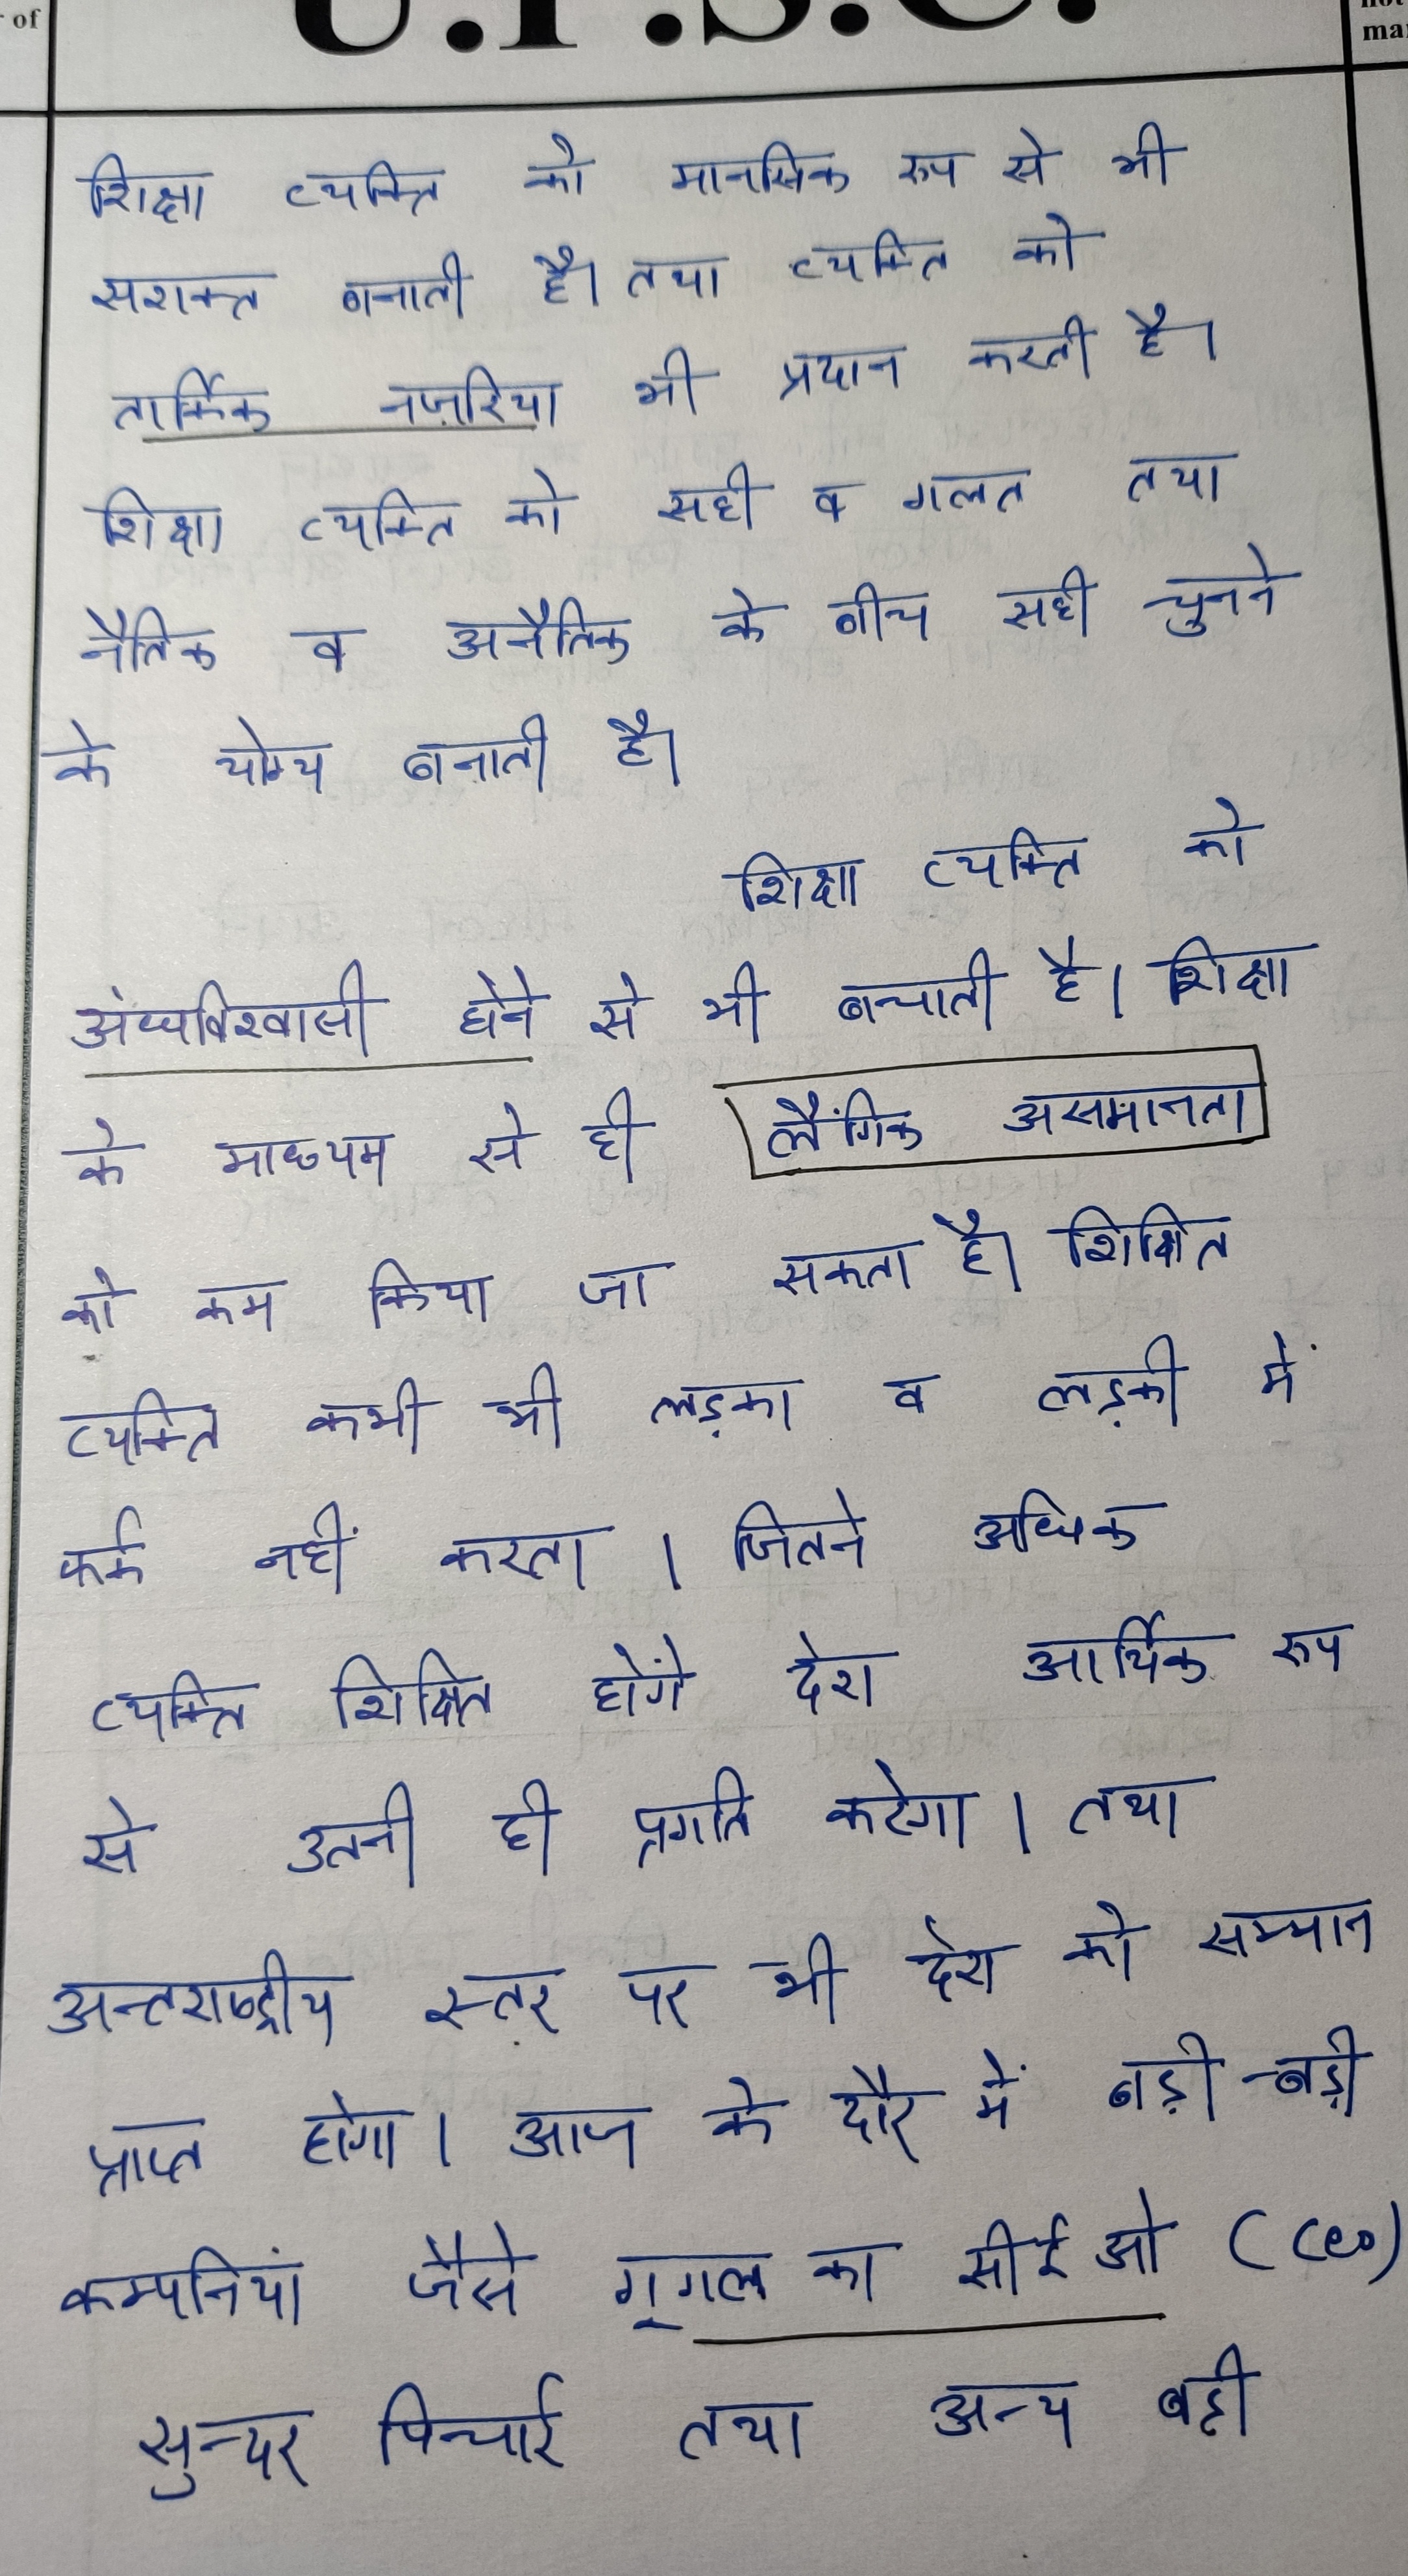 of
U.P.S.C.
शिक्षा व्यक्ति को मानसिक रूप से भी
सशक्त बनाती है। तथा व्यक्ति को
तार्किक नज़रिया भी प्रदान करती है।
शिक्षा व्यक्ति को सही व गलत तथा
नैतिक व अनैतिक के बीच सही चुनने
के योग्य बनाती है।
शिक्षा व्यक्ति को
अंधविश्वासी होने से भी बचाती है। शिक्षा
के माध्यम से ही लैंगिक असमानता
को कम किया जा सकता है। शिक्षित
व्यक्ति कभी भी लड़का व लड़की में
फर्क नहीं करता। जितने अधिक
व्यक्ति शिक्षित होंगे देश आर्थिक रूप
से उतनी ही प्रगति करेगा। तथा
अन्तराष्ट्रीय स्तर पर भी देश को सम्मान
प्राप्त होगा। आज के दौर में बड़ी-बड़ी
कम्पनियां जैसे गूगल का सीईओ (CEO)
सुन्दर पिचाई तथा अन्य